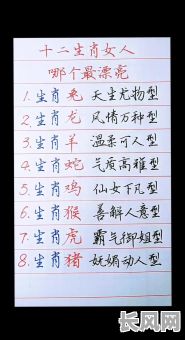 十二生肖女人
哪个最漂亮
1.生肖兔 天生尤物型
2.生肖龙 风情万种型
3.生肖羊 温柔可人型
4.生肖蛇 气质高雅型
5.生肖鸡 仙女下凡型
6.生肖猴 善解人意型
7.生肖虎 霸气御姐型
8.生肖猪 妩媚动人型
长风网